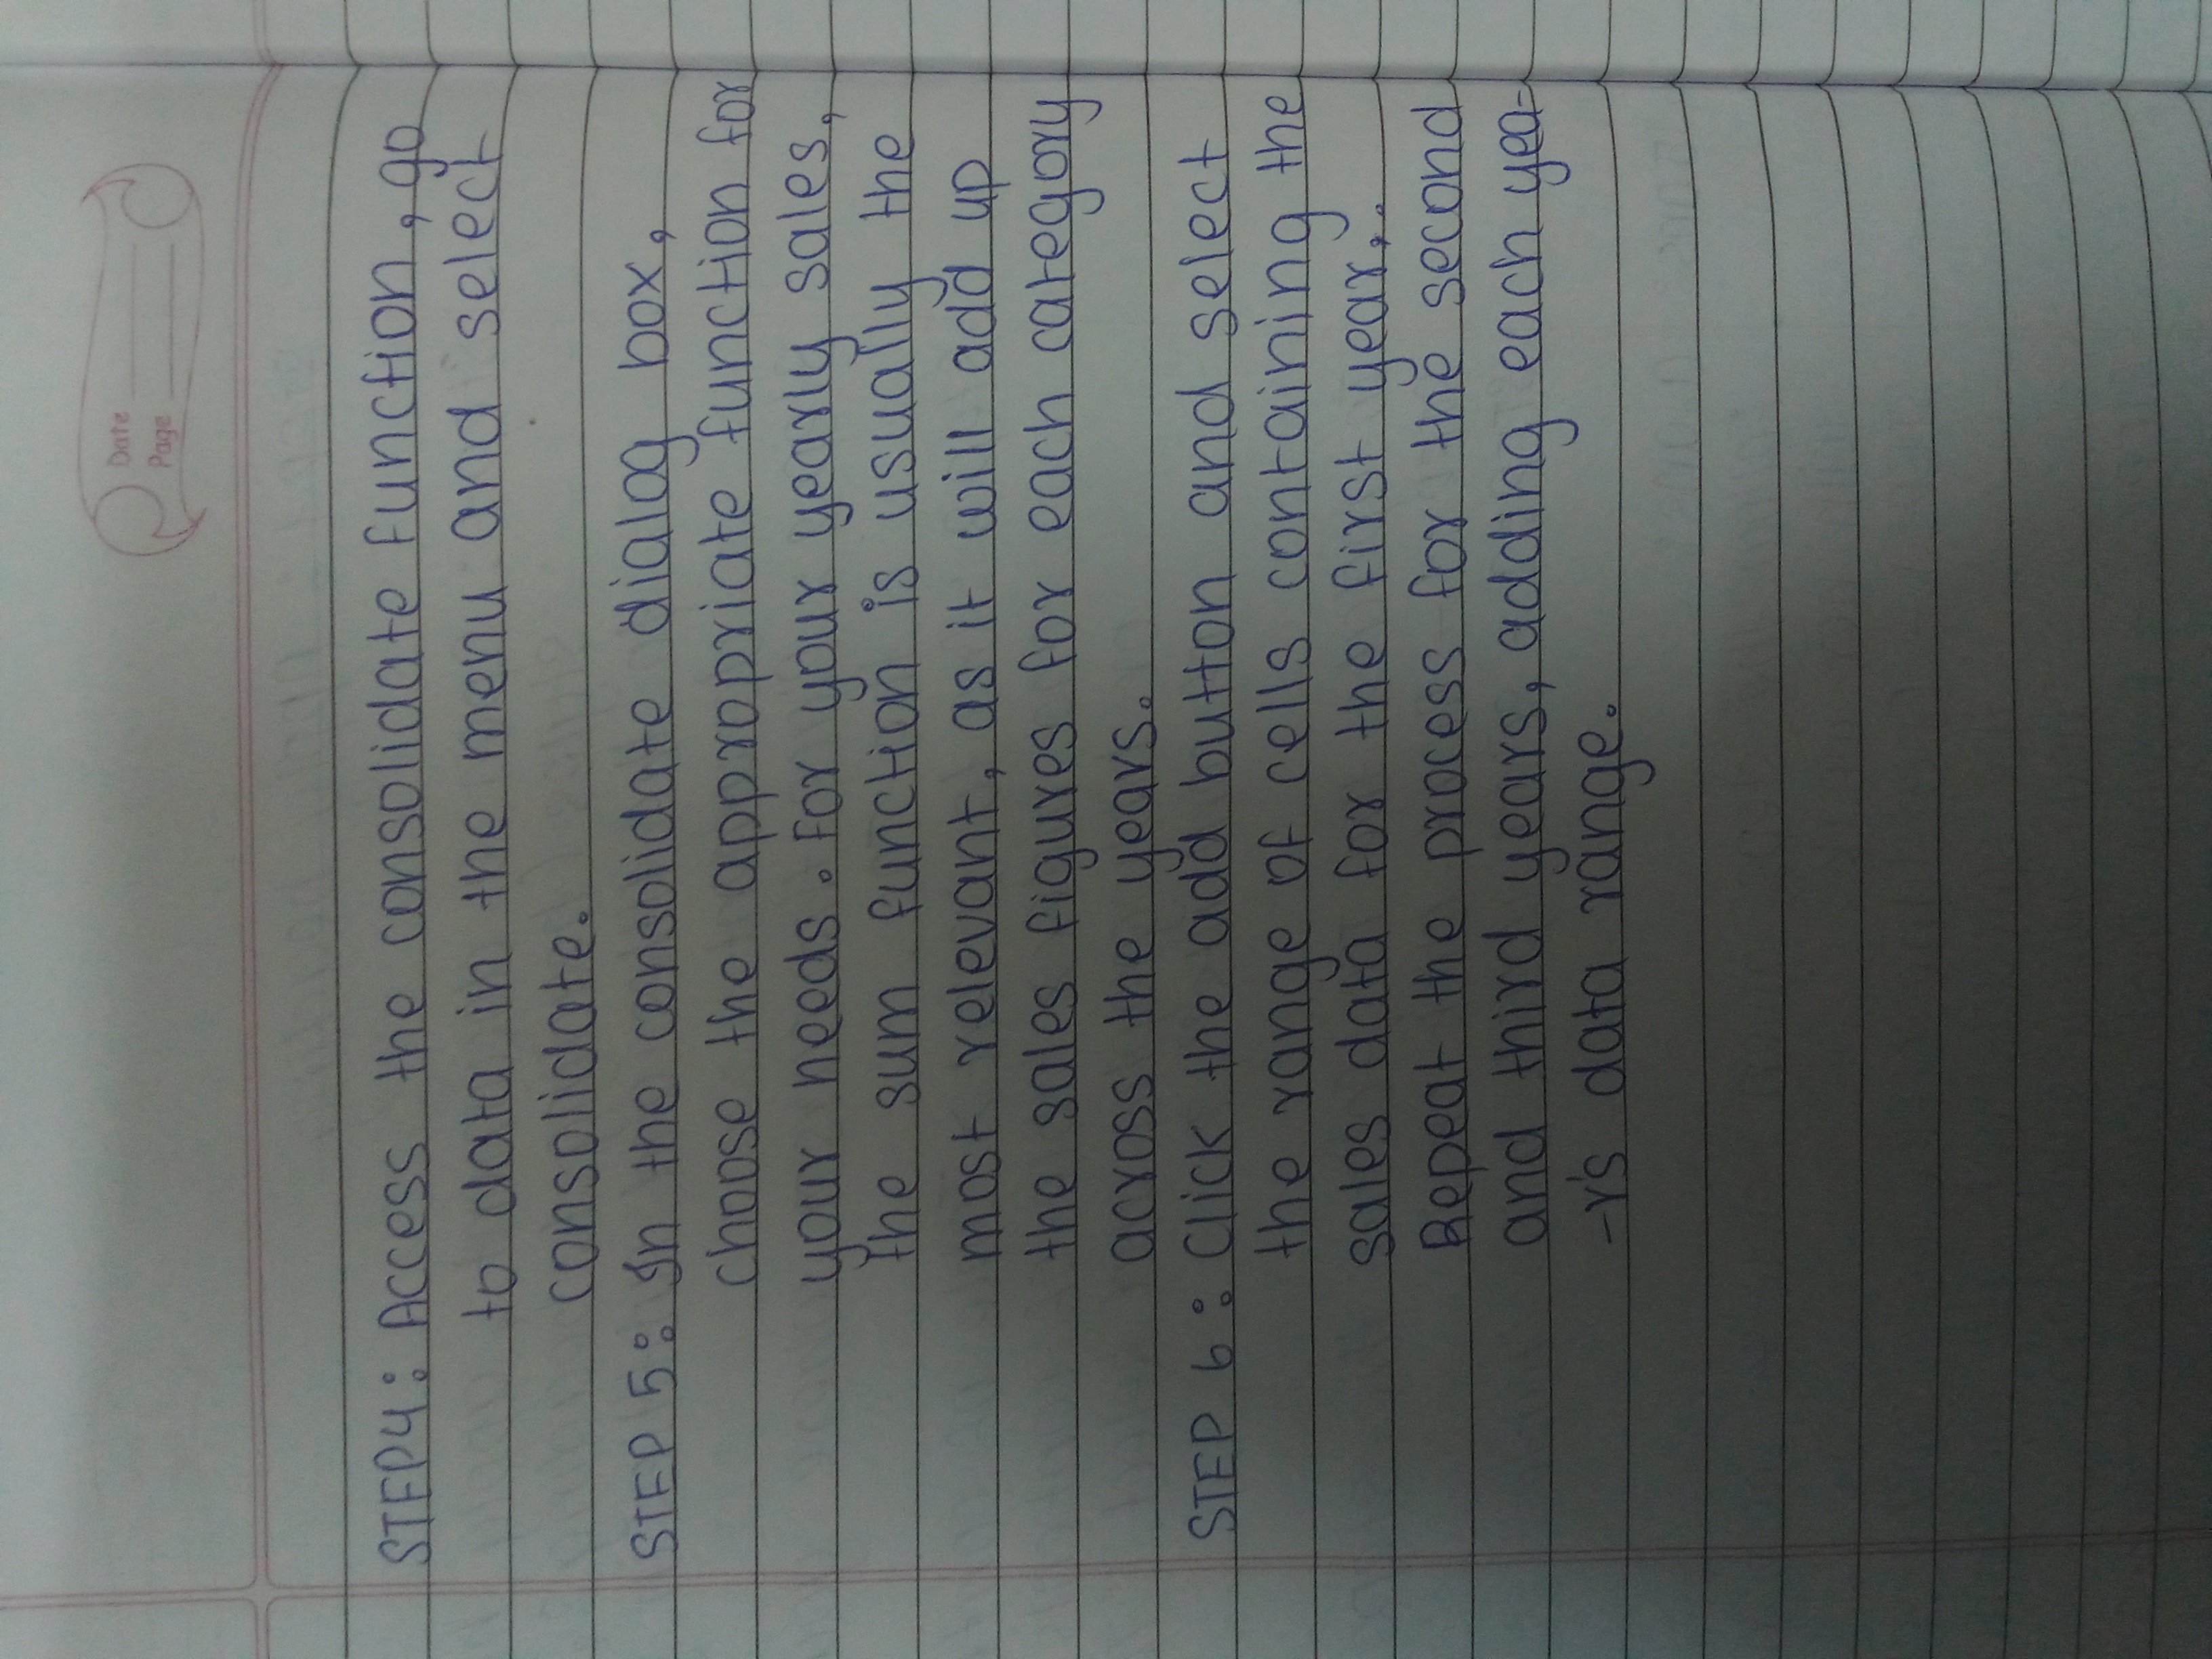 Date
Page
STEP4: Access the consolidate function, go
to data in the menu and select
consolidate.
STEP 5: In the consolidate dialog box,
choose the appropriate function for
your needs. For your yearly sales,
the sum function is usually the
most relevant, as it will add up
the sales figures for each category
across the years.
STEP 6: Click the add button and select
the range of cells containing the
sales data for the first year.
Repeat the process for the second
and third years, adding each yea-
-r's data range.